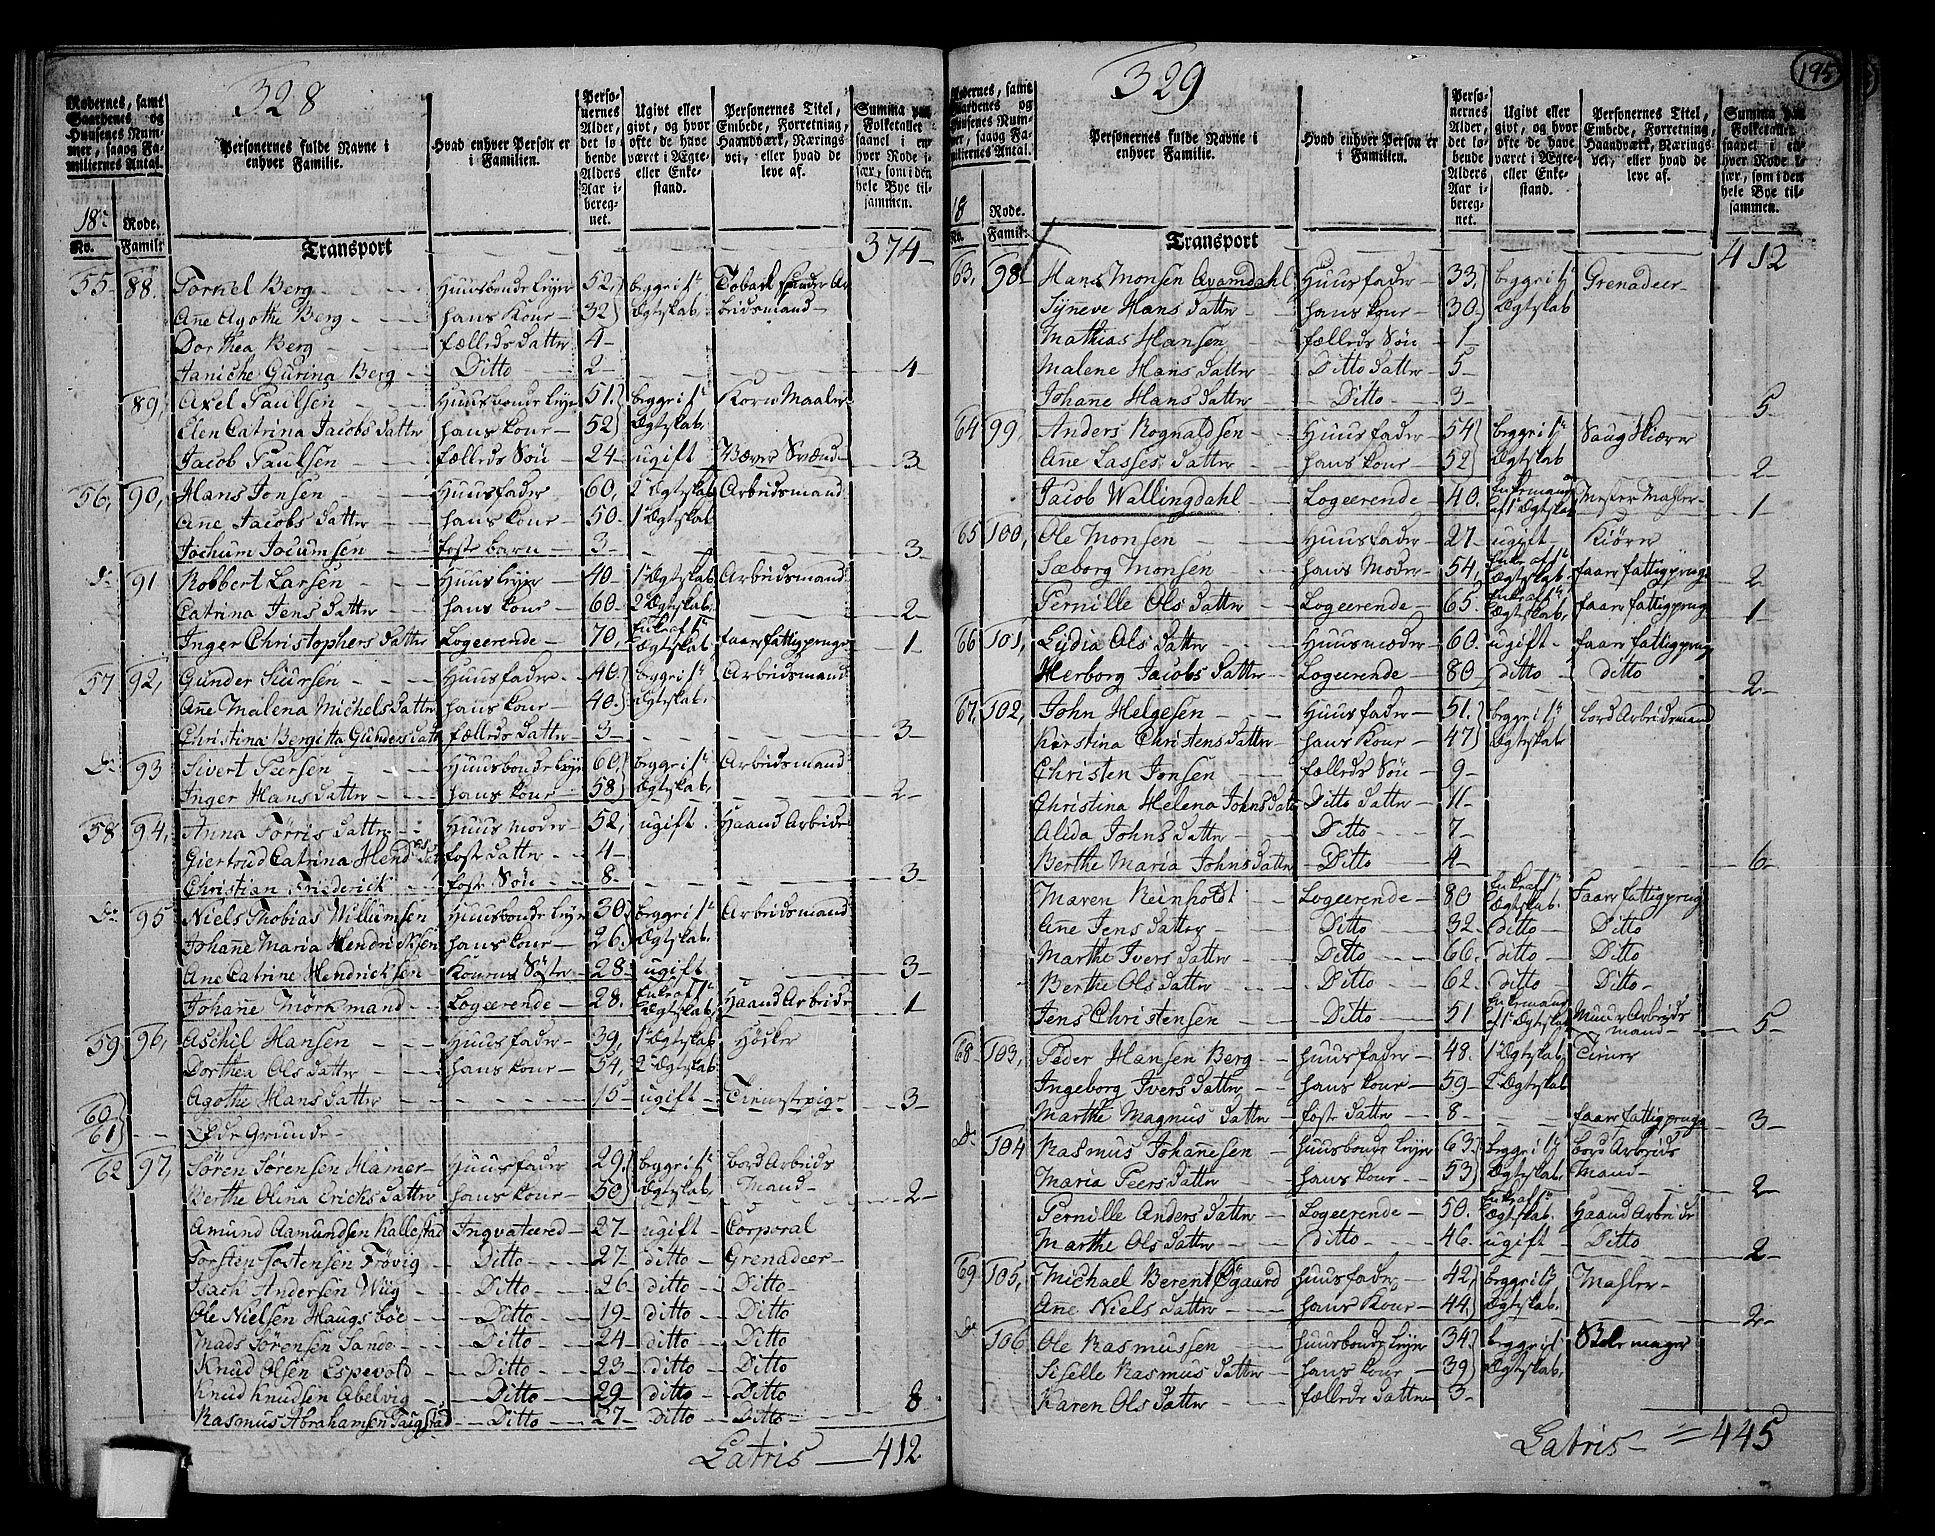 195
328
Rodernes, samt Gaardenes og Huusenes Nummer, saaog Familiernes Antal.
Personernes fulde Navne i enhver Familie.
Hvad enhver Person er i Familien.
Personernes Alder, det løbende Alders Aar iberegnet.
Ugivt eller givt, og hvor ofte de have været i Ægte- eller Enkestand.
Personernes Titel, Embede, Forretning, Haandværk, Næringsvei, eller hvad de leve af.
Summa paa Folketallet saavel i enhver Rode især, som i den hele Bye tilsammen.
18de Rode.
No. Famili:
Transport 374
55 88. Tornel Berg Huusbonde leyer 52 begge i 1te Tobak
Ane Agothe Berg hans Kone 32 Ægteskab Arbeidsmand
Dorthea Berg fælleds Datter 4
Janiche Gurina Berg Ditto 2 4
89, Axel Paulsen Huusbonde leyer 51 begge i 1te Korn Maaler
Elen Catrina Jacobs Datter hans kone 52 Ægteskab
Jacob Paulsen fælleds Søn 24 ugift Væver Svend 3
56, 90, Hans Jonsen Huusfader 60, 2 Ægteskab Arbeidsmand
Ane Jacobs Datter hans kone 50 1te Ægteskab
Jochum Jocumsen foster barn 3 3
Do 91 Robbert Larsen Huus leyer 40 1te Ægteskab Arbeidsmand
Catrina Jens Datter hans kone 60 2 Ægteskab 2
Inger Christophers Datter Logeerende 70, Enke af 1te Ægteskab faaer fattigpenge 1
57 92, Gunder Siursen Huusfader 40. begge i 1te Arbeidsmand
Ane Malena Michels Datter hans kone 40. Ægteskab
Christina Bergitta Gunders Datter fælleds Datter 3 3
Do 93 Sivert Peersen Huusbonde leyer 60, begge i 1te Arbeidsmand
Inger Hans Datter hans kone 58 Ægteskab 2
58 94, Anna Torris Datter Huus moder 52, ugift Haand Arbeide
Giertrud Catrina Hend foster Datter 4
Christian Friderick foster Søn 8 3
Do 95 Niels Thobias Willumsen Huusbonde leyer 30 begge i 1te Arbeidsmand
Johane Maria Hendricksen hans kone 26. Ægteskab
Ane Catrine Hendricksen Konens Søster 28 ugift 3
Johane Mörkmand Logeerende 28. Enke af 1te Ægteskab Haand Arbeide 1
59 96, Aschil Hansen Huusfader 39, 1te Ægteskab Høcker
Dorthea Ols Datter hans kone 54, 2 Ægteskab
Agothe Hans Datter 15 ugift Tienstepige 3
60 61 Øde Grunde
62 97, Sören Sörensen Hamer Huusfader 29 begge i 1te bord Arbeids
Berthe Olina Ericks Datter hans kone 50 Ægteskab Mand 2
Amund Aamundsen Kallestad Inqvateered 27 ugift Corporal
Torsten Tostensen Frövig Ditto 27 ditto Grenadeer
Isach Andersen Wiig Ditto 26 ditto Ditto
Ole Nielsen Haugsböe Ditto 19 ditto Ditto
Mads Sörensen Sande Ditto 24 ditto Ditto
Knud Olsen Espevold Ditto 23 ditto Ditto
Knud Knudsen Abelvig Ditto 29 ditto Ditto 8
Rasmus Abrahamsen Ditto 27 ditto Ditto
Latris 412
329
Rodernes, samt Gaardenes og Huusenes Nummer, saaog Familiernes Antal.
Personernes fulde Navne i enhver Familie.
Hvad enhver Person er i Familien.
Personernes Alder, det løbende Alders Aar iberegnet.
Ugivt eller givt, og hvor ofte de have været i Ægte- eller Enkestand.
Personernes Titel, Embede, Forretning, Haandværk, Næringsvei, eller hvad de leve af.
Summa paa Folketallet saavel i enhver Rode især, som i den hele Bye tilsammen.
18 Rode.
No. Famili:
Transport 412
63, 98 Hans Monsen Qvamdahl Huusfader 33, begge i 1te Grenadeer
Syneve Hans Datter hans kone 30 Ægteskab
Mathias Hansen fælleds Søn 1
Malene Hans Datter Ditto Datter 5
Johane Hans Datter Ditto 3 5
64 99 Anders Rognaldsen Huusfader 54 begge i 1te Saug Skiærer
Ane Lasses Datter hans kone 52 Ægteskab 2
Jacob Wallingdahl Logeerende 40. Enkemand af 1te Ægteskab Mester Mahler 1
65 100, Ole Monsen Huusfader 27 ugift Kiörer
Sæborg Monsen hans Moder 54, Enke af 1te Ægteskab faaer fattigpenge 2
Pernille Ols Datter Logeerende 65. Enke af 1te Ægteskab faaer fattigpenge 1
66 101, Lydia Ols Datter Huusmoder 60. ugift faaer fattigpenge
Herborg Jacobs Datter Logeerende 80 ditto ditto 2
67, 102, John Helgesen Huusfader 51. begge i 1te bord Arbeidsmand
Kirstina Christens Datter hans Kone 47 Ægteskab
Christen Jonsen fælleds Søn 9
Christina Helena Johns Datter Ditto Datter 11
Alida Johns Datter Ditto 7
Berthe Maria Johns Datter Ditto 4 6
Maren Reinholdt Logeerende 80 Enke af 1te Ægteskab Faaer fattigpenge
Ane Jens Datter Ditto 32 ditto Ditto
Marthe Ivers Datter Ditto 66. ditto Ditto
Berthe Ols Datter Ditto 62. ditto Ditto
Jens Christensen Ditto 51 Enkemand af 1te Ægteskab Muur Arbeids mand 5
68 103, Peder Hansen Berg Huusfader 48. 1te Ægteskab Tiener
Ingeborg Ivers Datter hans kone 59 2 Ægteskab
Marthe Magnus Datter foster Datter 8 faaer fattigpenge 3
Do 104 Rasmus Johanesen Huusbonde leyer 63. begge i 1te bord Arbeids
Maria Peers Datter hans kone 53 Ægteskab Mand 2
Pernille Anders Datter Logeerende 50. Enke af 1te Ægteskab Haand Arbeide
Marthe Ols Datter ditto 46. ugift Ditto 2
69 105, Michael Berent Øgaard Huusfader 42 begge i 1te Mahler
Ane Niels Datter hans Kone 44 Ægteskab 2
Do 106 Ole Rasmussen Huusbonde leyer 34 begge i 1te
Siselle Rasmus Datter hans kone 39 Ægteskab
Karen Ols Datter fælleds Datter 3
Latris 445